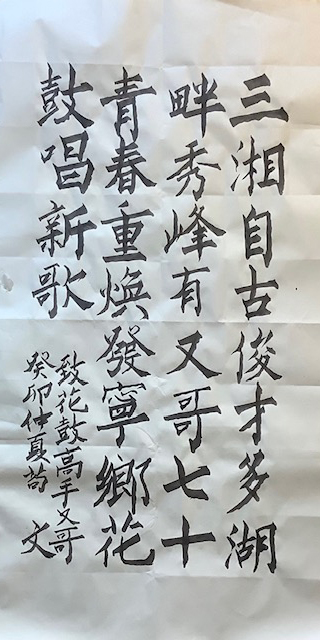 三湘自古俊才多湖
畔秀峰有又哥七十
青春重焕發寧鄉花
鼓唱新歌
致花鼓高手又哥
癸卯仲夏苟文